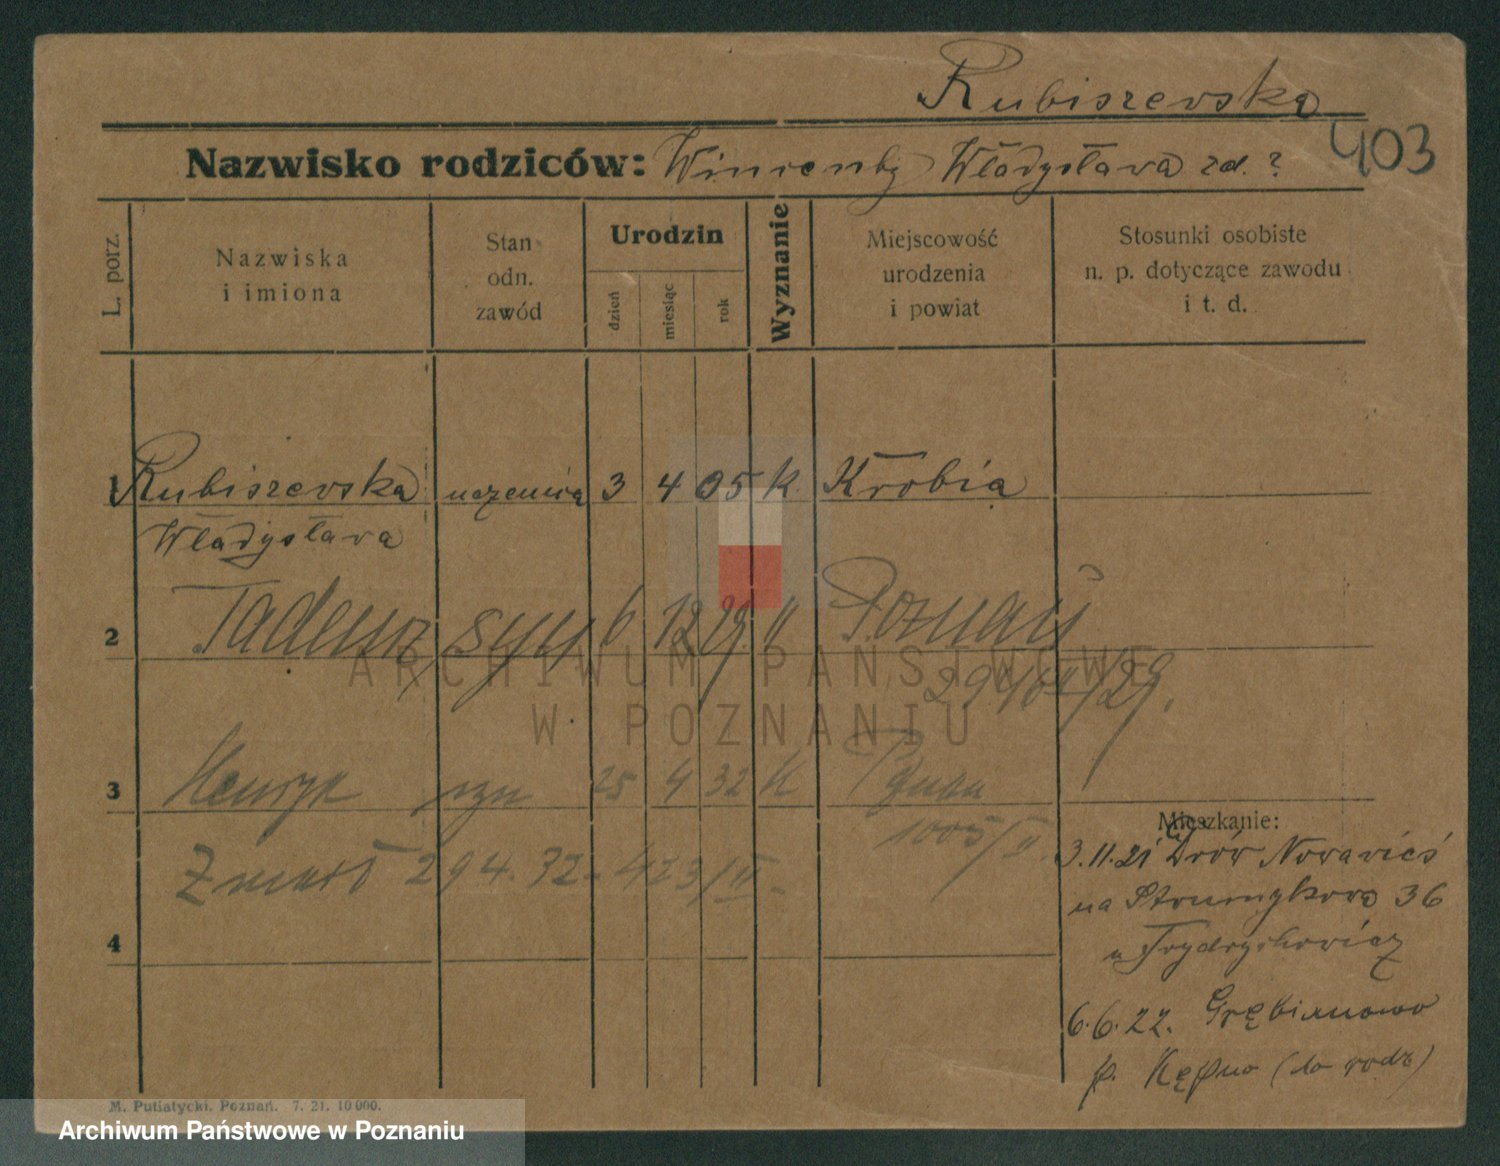 Rubiszevska
403
Nazwisko rodziców: Władysława zd. ?
L. porz.
Nazwiska
i imiona
Stan
odn.
zawód
Urodzin
dzień
miesiąc
rok
Wyznanie
Miejscowość
urodzenia
i powiat
Stosunki osobiste
n. p. dotyczące zawodu
i t. d.
1 Rubiszevska 3 4 05 K Krobia
Władysława
2 Tadeusz syn 6 12 29 " Poznań
3 Henryk syn 25 4 32 K
1005/II
Zmarł 29 4. 32 - 423/III -
4
Mieszkanie:
3.11.21
na 36
6.6.22. Grębianowo
p. Kępno (do rodz)
M. Putiatycki. Poznań. 7. 21. 10 000.
ARCHIWUM PAŃSTWOWE
W POZNANIU
Archiwum Państwowe w Poznaniu